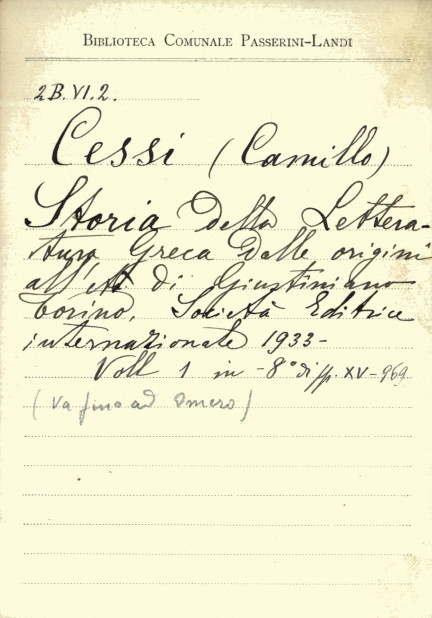 BIBLIOTECA COMUNALE PASSERINI-LANDI
2B.VI.2.
Cessi (Camillo)
Storia della Lettera-
tura Greca dalle origini
all'età di Giustiniano
Torino, Società Editrice
internazionale 1933-
Voll 1 in -8° di pp. XV-969
(va fino ad Omero)